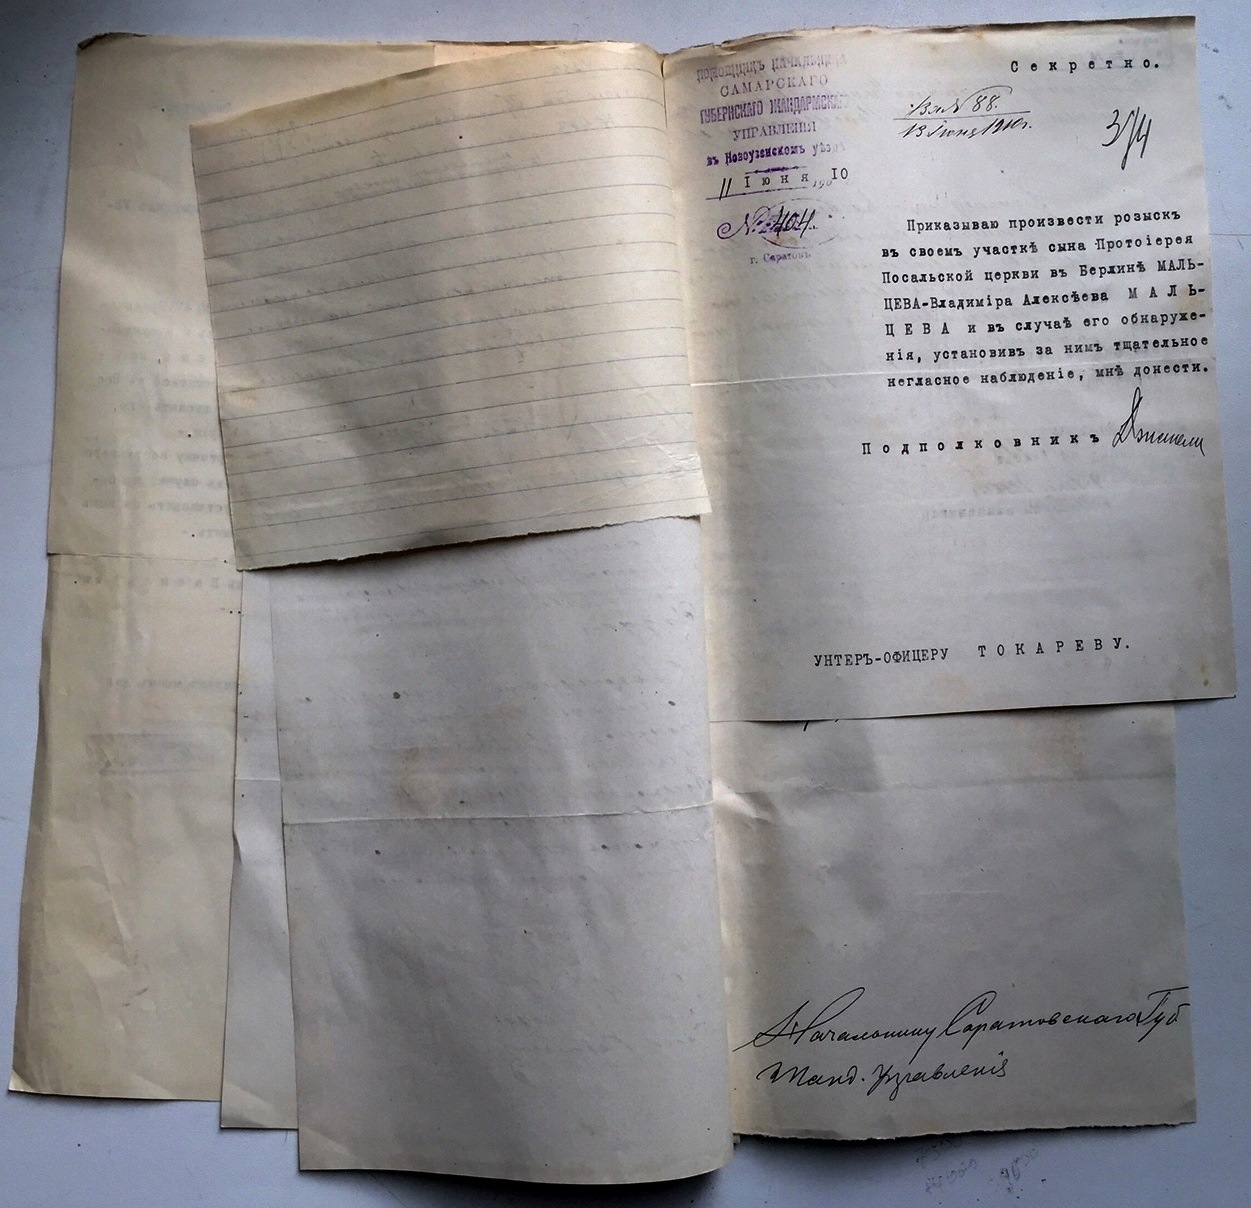 Секретно.
ПОМОЩНИКЪ НАЧАЛЬНИКА
САМАРСКАГО
ГУБЕРНСКАГО ЖАНДАРМСКАГО
УПРАВЛЕНІЯ
въ Новоузенскомъ уѣздѣ
11 Іюня 1910
№ 404
г. Саратовъ
Вх. № 88.
13 Іюня 1910 г.
Приказываю произвести розыскъ
въ своемъ участкѣ сына Протоіерея
Посальской церкви въ Берлинѣ МАЛЬ-
ЦЕВА-Владиміра Алексѣева МАЛЬ-
ЦЕВА и въ случаѣ его обнаруже-
нія, установивъ за нимъ тщательное
негласное наблюденіе, мнѣ донести.
Подполковникъ
УНТЕРЪ-ОФИЦЕРУ ТОКАРЕВУ.
Начальнику Саратовскаго Губ
Жанд. Управленія